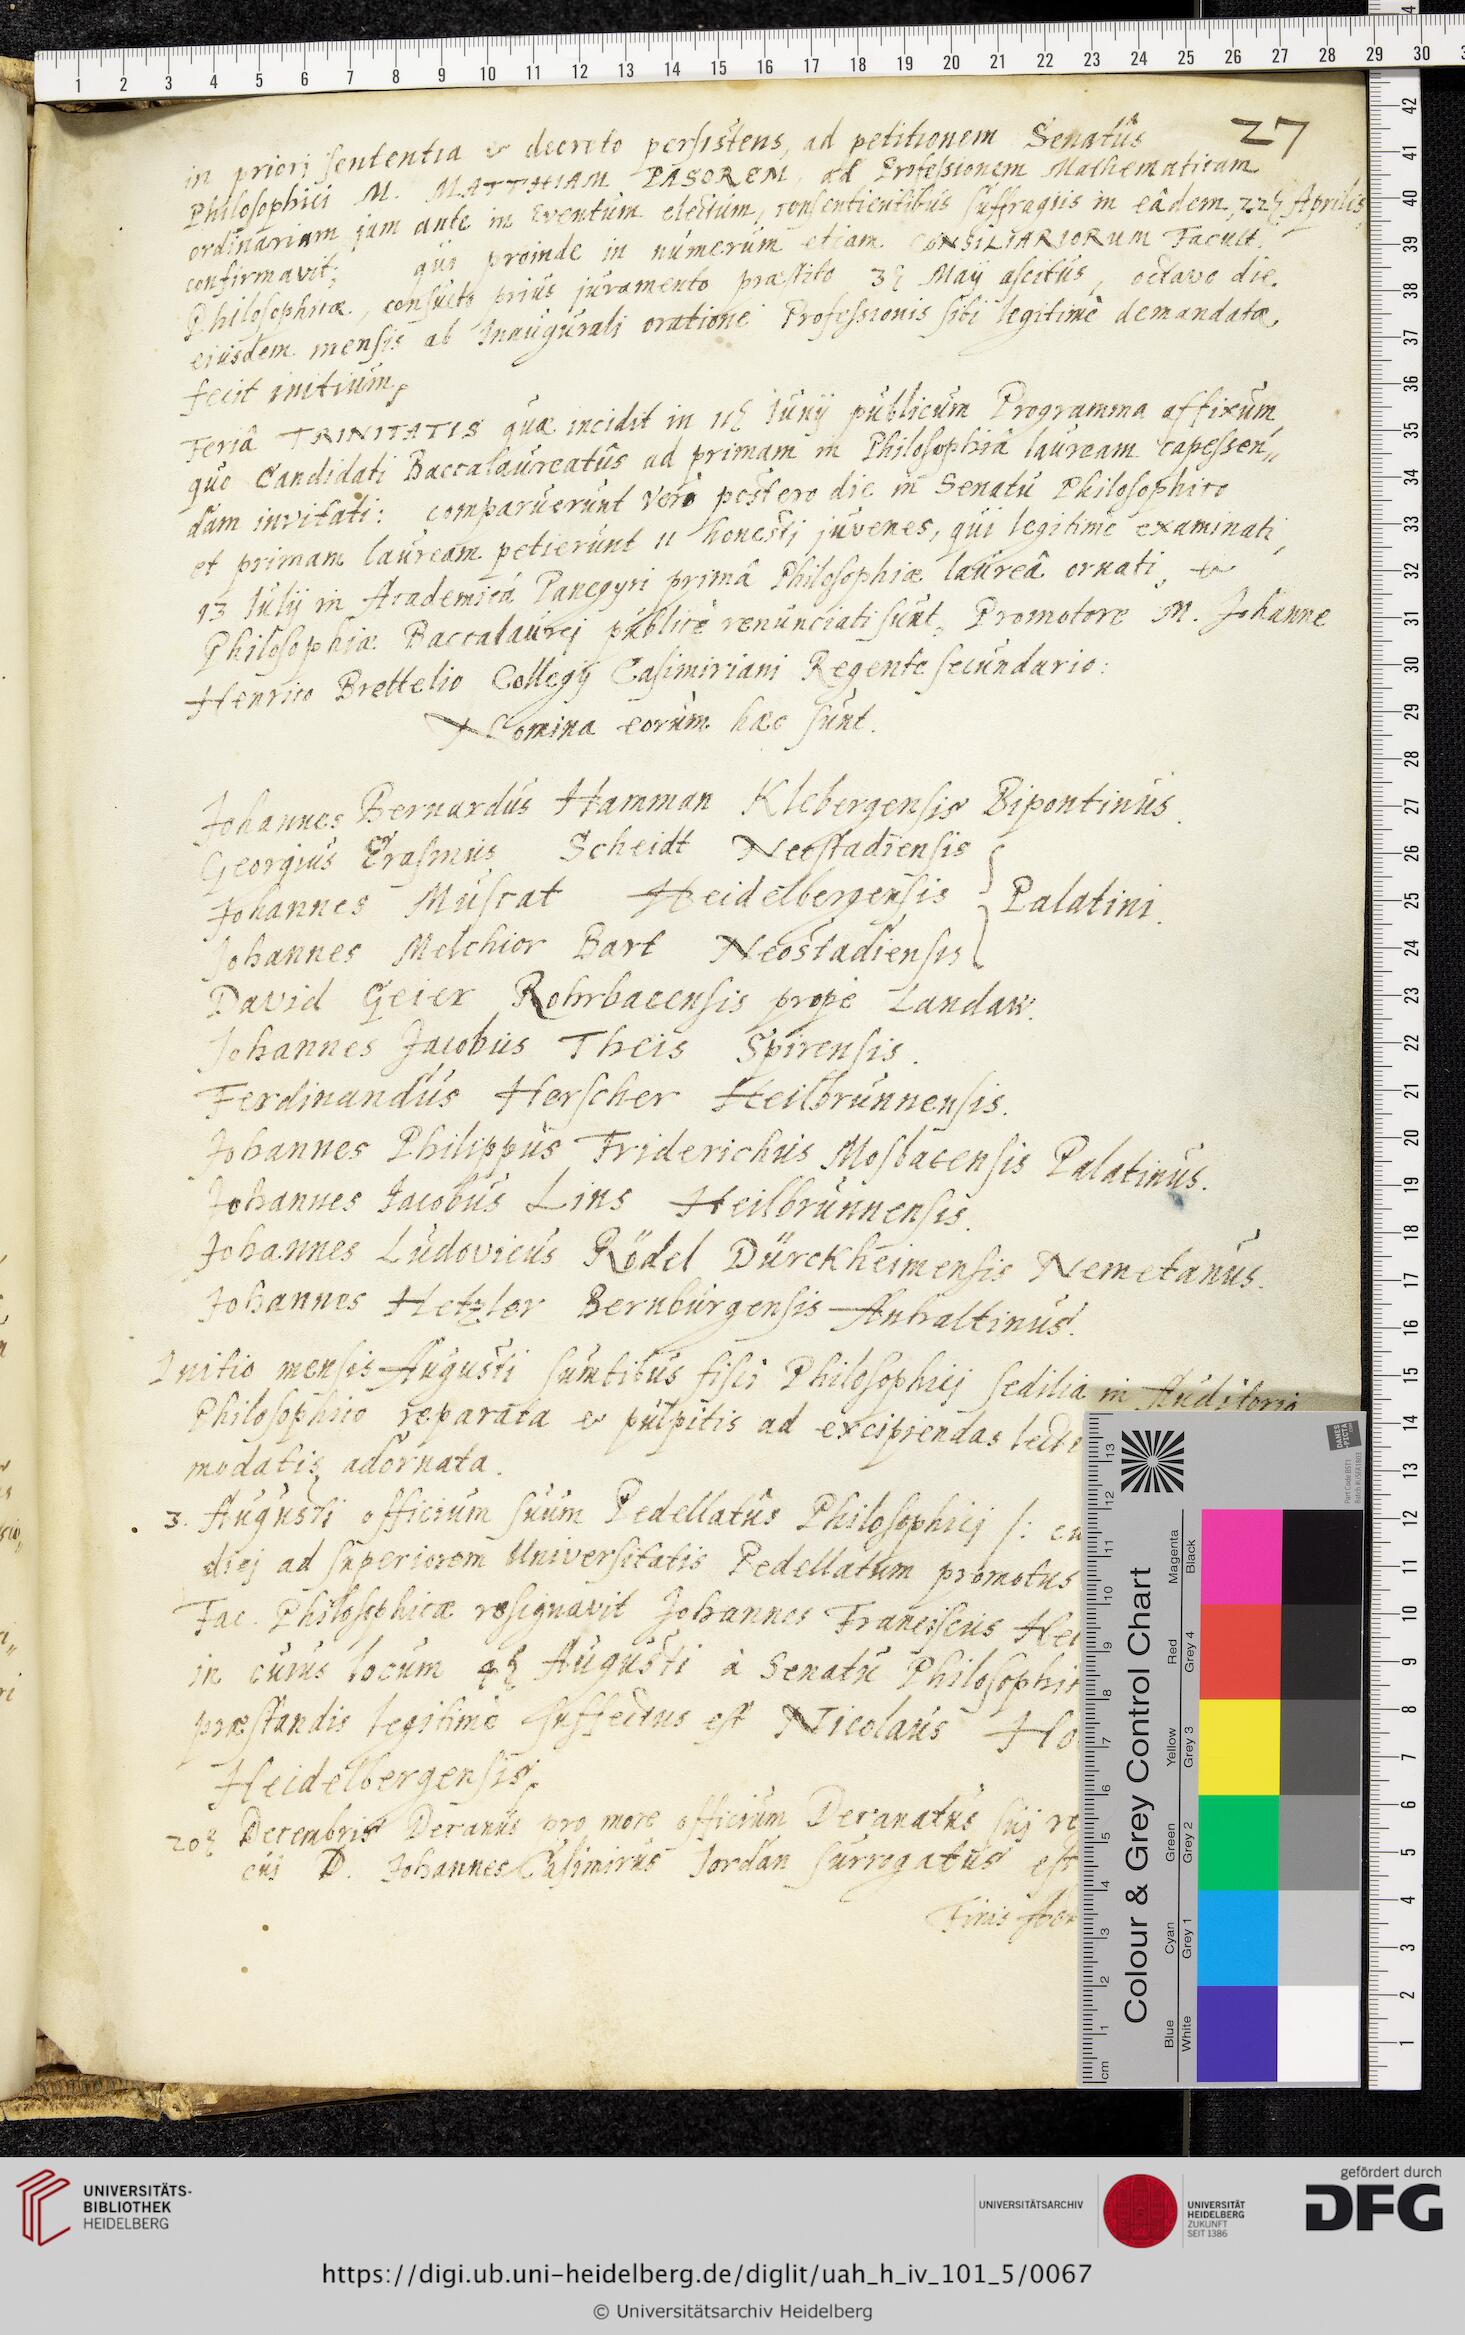 27
in priori sententia & decreto persistens, ad petitionem Senatûs
Philosophici M. MATTHIAM PASOREM, ad Professionem Mathematicam
ordinariam jam ante in Eventum electum, consentientibus suffragiis in eâdem, 22 Aprilis
confirmavit; qui proinde in numerum etiam CONSILIARIORUM Facult.
Philosophicæ, consueto prius juramento præstito 3 Maij ascitus, octavo die
eiusdem mensis ab Inaugurali oratione Professionis sibi legitimè demandatæ
fecit initium.
Feriâ TRINITATIS quæ incidit in 11 Iunij publicum Programma affixum
quo Candidati Baccalaureatûs ad primam in Philosophiâ lauream capessen„
dam invitati: comparuerunt verò postero die in Senatu Philosophico
et primam lauream petierunt 11 honesti juvenes, qui legitime examinati,
13 Iulij in Academicâ Panegyri primâ Philosophiæ laureâ ornati, &
Philosophiæ Baccalaurej publicè renunciati sunt, Promotore M. Johanne
Henrico Brettelio Collegij Casimiriani Regente secundario:
Nomina eorum hæc sunt.
Johannes Bernardus Hamman Klebergensis Bipontinus.
Georgius Erasmus Scheidt Neostadiensis
Johannes Muscat Heidelbergensis Palatini.
Johannes Melchior Bart Neostadiensis
David Geier Rohrbacensis prope Landaw.
Johannes Jacobus Theis Spirensis.
Ferdinandus Herscher Heilbrunnensis.
Johannes Philippus Friderichus Mosbacensis Palatinus.
Johannes Iacobus Lins Heilbrunnensis.
Johannes Ludovicus Rödel Dürckheimensis Nemetanus.
Johannes Hetzler Bernburgensis Anhaltinus.
Initio mensis Augusti sumtibus fisci Philosophici sedilia in Auditorio
Philosophico reparata & pulpitis ad excipiendas
modatis adornata.
3. Augusti officium suum Pedellatûs Philosophici
diej ad superiorem Universitatis Pedellatum promotus
Fac. Philosophicæ resignavit Johannes Franciscus
in cuius locum 4 Augusti à Senatu
præstandis legitimè suffectus est Nicolaus
Heidelbergensis.
20 Decembris Decanus pro more officium Decanatus sui
cui D. Johannes Casimirus Jordan surrogatus est
Finis
1 2 3 4 5 6 7 8 9 10 11 12 13 14 15 16 17 18 19 20 21 22 23 24 25 26 27 28 29 30
42 41 40 39 38 37 36 35 34 33 32 31 30 29 28 27 26 25 24 23 22 21 20 19 18 17 16 15 14 13 12 11 10 9 8 7 6 5 4 3 2 1
Colour & Grey Control Chart
Blue Cyan Green Yellow Red Magenta
White Grey 1 Grey 2 Grey 3 Grey 4 Black
cm 1 2 3 4 5 6 7 8 9 10 11 12 13
DANES PICTA .COM
UNIVERSITÄTS-
BIBLIOTHEK
HEIDELBERG
UNIVERSITÄTSARCHIV
UNIVERSITÄT
HEIDELBERG
ZUKUNFT
SEIT 1386
gefördert durch
DFG
https://digi.ub.uni-heidelberg.de/diglit/uah_h_iv_101_5/0067
© Universitätsarchiv Heidelberg